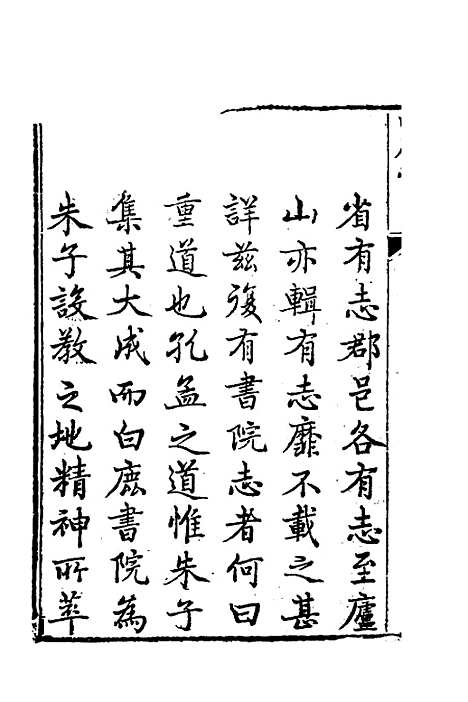 省有志郡邑各有志至廬
山亦輯有志靡不載之甚
詳茲復有書院志者何曰
重道也孔孟之道惟朱子
集其大成而白鹿書院為
朱子設教之地精神所萃